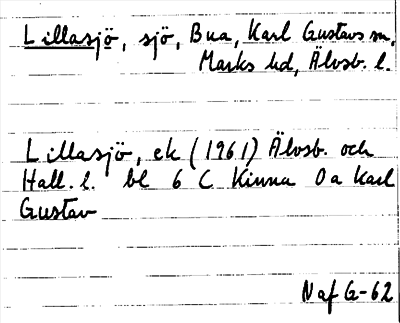 Lillasjö, sjö, Bua, Karl Gustavs sn,
Marks hd, Älvsb. l.
Lillasjö, ek (1961) Älvsb. och
Hall. l. bl 6 C Kinna Oa Karl
Gustav
Naf G-62